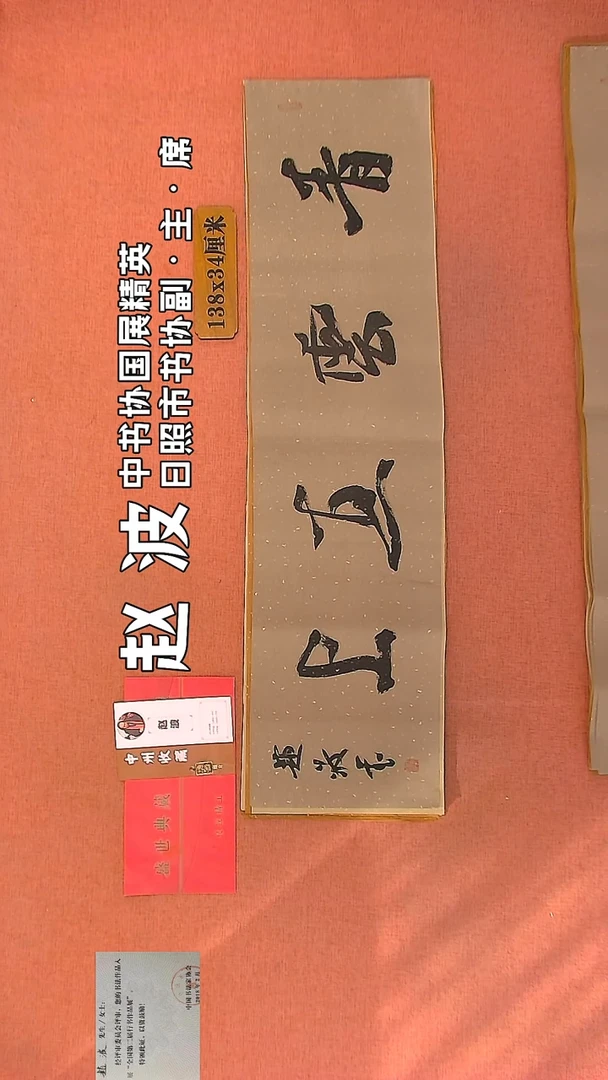 中书协国展精英
赵波
日照市书协副·主·席
138x34厘米
青雲直上
趙波书
赵波
中州收藏
盛世典藏
赵波 先生/女士:
经评审委员会评审,您的书法作品入
展“全国第二届行书作品展”,
特颁此证,以资鼓励!
中国书法家协会